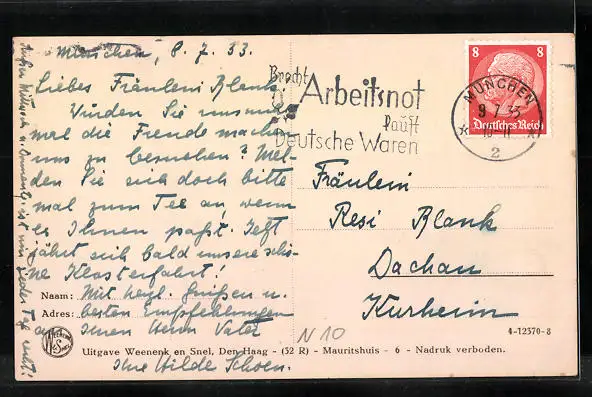 München, 8. 7. 33.
Liebes Fräulein Blank,
Würden Sie uns nun
mal die Freude machen
uns zu besuchen? Mel-
den Sie sich doch bitte
mal zum Tee an, wenn
es Ihnen paßt. Jetzt
jährt sich bald unsere schö-
ne Klosterfahrt!
Naam: Mit herzl. Grüßen u.
Adres: besten Empfehlungen
an Ihren Herrn Vater
Ihre Hilde Schoen.
Außer Mittwoch u. Donnerst. ist uns jeder Tag recht!
Uitgave Weenenk en Snel, Den Haag - (52 R) - Mauritshuis - 6 - Nadruk verboden.
Brecht
die
Arbeitsnot
kauft
Deutsche Waren
8 8
Deutsches Reich
MÜNCHEN
2
Fräulein
Resi Blank
Dachau
Kurheim
N 10
4-12370-8